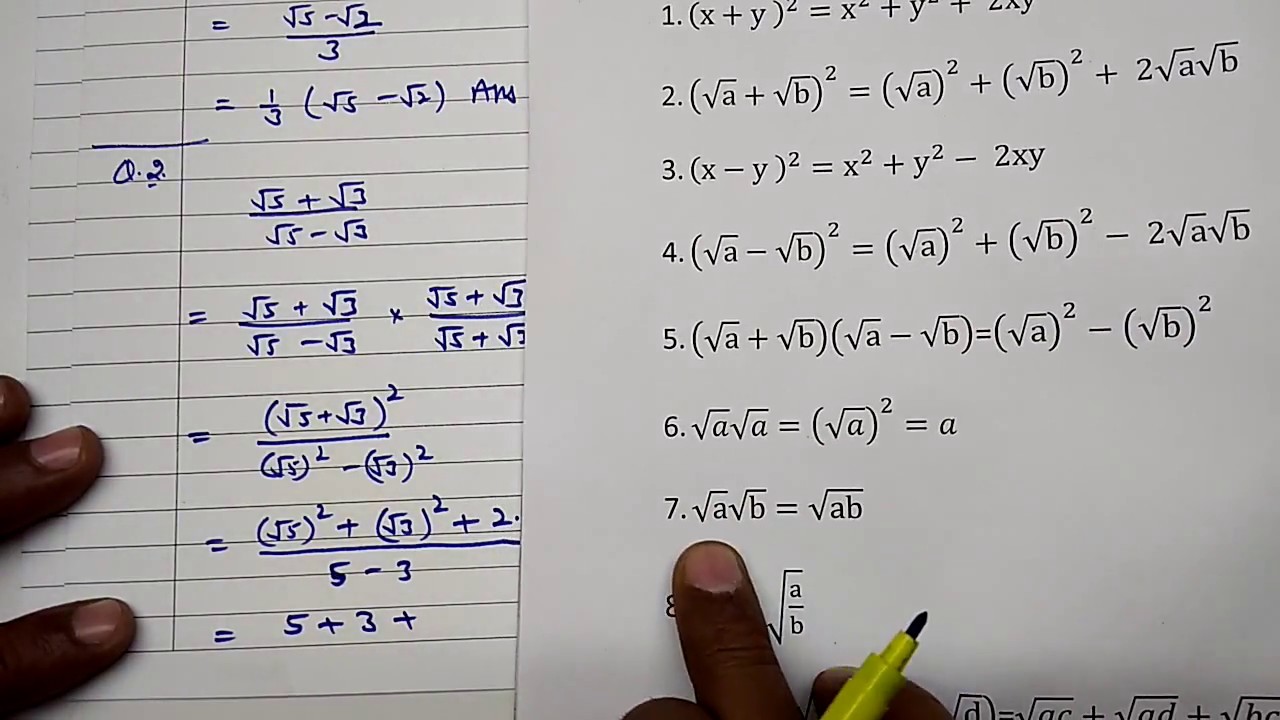 = √5 - √2 / 3
= 1/3 (√5 - √2) Ans
Q.2.
√5 + √3 / √5 - √3
= √5 + √3 / √5 - √3 × √5 + √3 / √5 + √3
= (√5 + √3)² / (√5)² - (√3)²
= (√5)² + (√3)² + 2. / 5 - 3
= 5 + 3 +
1. (x + y )² = x² + y² + 2xy
2. (√a + √b)² = (√a)² + (√b)² + 2√a√b
3. (x − y )² = x² + y² − 2xy
4. (√a − √b)² = (√a)² + (√b)² − 2√a√b
5. (√a + √b)(√a − √b)=(√a)² − (√b)²
6. √a√a = (√a)² = a
7. √a√b = √ab
√a/b
√d)=√ac + √ad + √bc